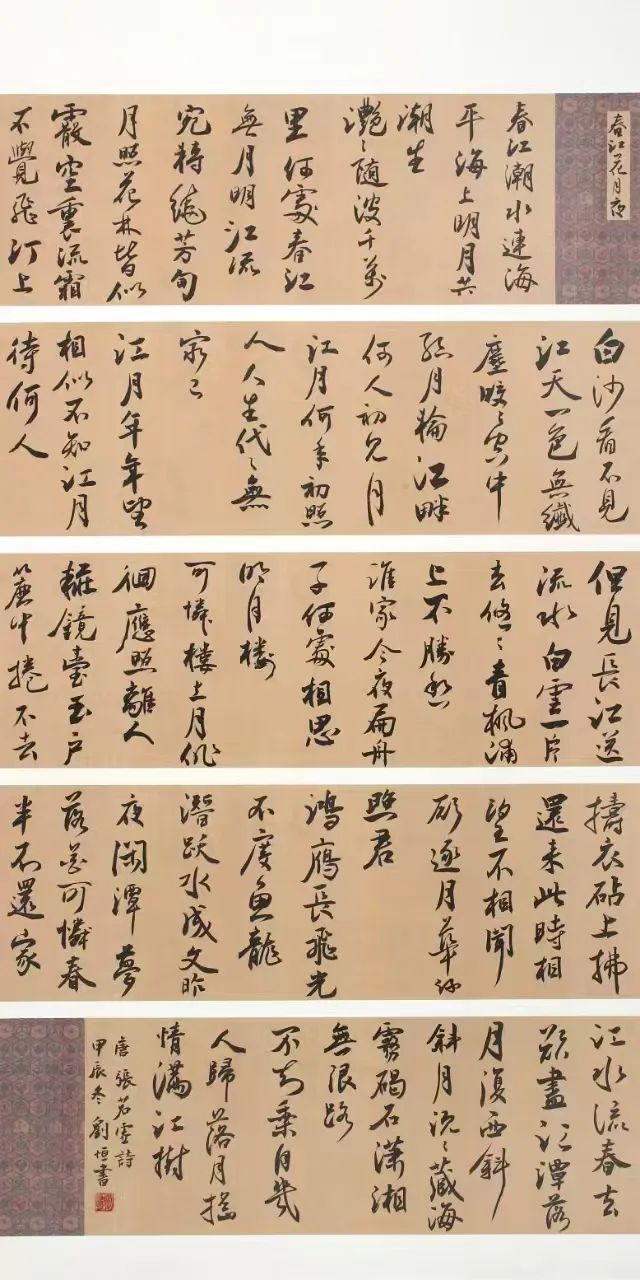 春江花月夜
春江潮水連海
平海上明月共
潮生
灔〻随波千萬
里何處春江
無月明江流
宛轉繞芳甸
月照花林皆似
霰空裏流霜
不覺飛汀上
白沙看不見
江天一色無纖
塵皎〻空中
孤月輪江畔
何人初見月
江月何年初照
人人生代〻無
窮已
江月年年望
相似不知江月
待何人
但見長江送
流水白雲一片
去悠〻青楓浦
上不勝愁
誰家今夜扁舟
子何處相思
明月樓
可憐樓上月俳
徊應照離人
粧鏡臺玉戶
簾中捲不去
擣衣砧上拂
還来此時相
望不相聞
願逐月華流
照君
鴻鴈長飛光
不度魚龍
潛躍水成文昨
夜閑潭夢
落花可憐春
半不還家
江水流春去
欲盡江潭落
月復西斜
斜月沉〻藏海
霧碣石瀟湘
無限路
不知乘月幾
人歸落月搖
情滿江樹
唐張若虛詩
甲辰冬劉恒書